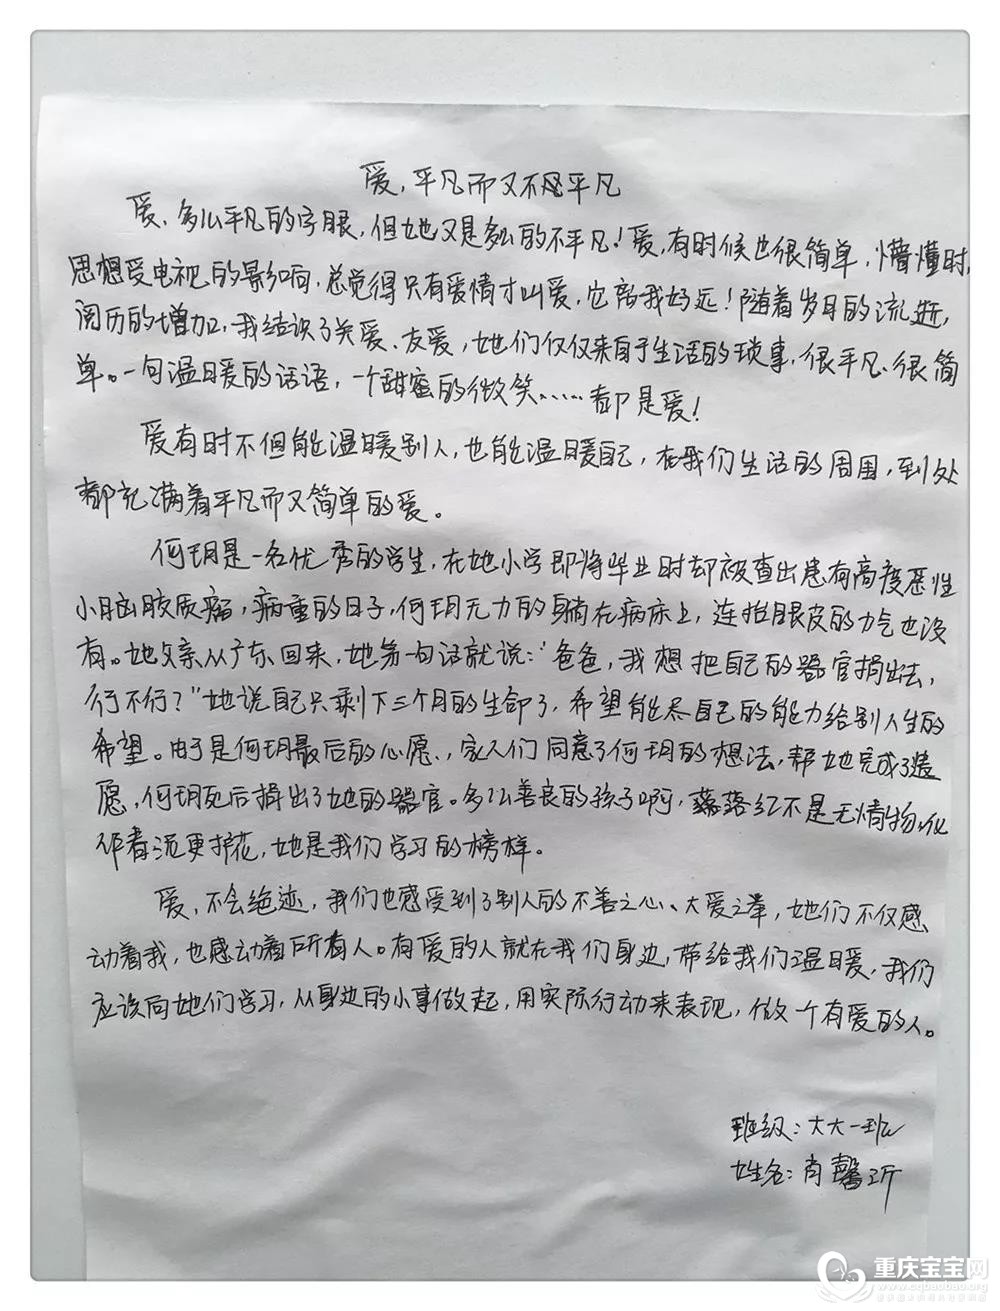 爱,平凡而又不平凡
爱,多么平凡的字眼,但她又是多么的不平凡!爱,有时候也很简单,懵懂时,
思想受电视的影响,总觉得只有爱情才叫爱,它离我好远!随着岁月的流逝,
阅历的增加,我结识了关爱、友爱,她们仅仅来自于生活的琐事,很平凡、很简
单。一句温暖的话语,一个甜蜜的微笑……都是爱!
爱有时不但能温暖别人,也能温暖自己,在我们生活的周围,到处
都充满着平凡而又简单的爱。
何玥是一名优秀的学生,在她小学即将毕业时却被查出患有高度恶性
小脑胶质瘤,病重的日子,何玥无力的躺在病床上,连抬眼皮的力气也没
有。她父亲从广东回来,她第一句话就说:“爸爸,我想把自己的器官捐出去,
行不行?”她说自己只剩下三个月的生命了,希望能尽自己的能力给别人生的
希望。由于是何玥最后的心愿,家人们同意了何玥的想法,帮她完成了遗
愿,何玥死后捐出了她的器官。多么善良的孩子啊,落红不是无情物,化
作春泥更护花,她是我们学习的榜样。
爱,不会绝迹,我们也感受到了别人的不善之心、大爱之举,她们不仅感
动着我,也感动着所有人。有爱的人就在我们身边,带给我们温暖,我们
应该向她们学习,从身边的小事做起,用实际行动来表现,做一个有爱的人。
班级:大大一班
姓名:肖馨沂
重庆宝宝网
www.cqbaobao.org